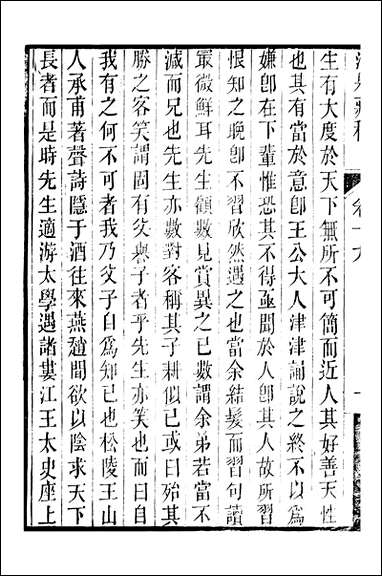 卷十九
生有大度於天下無所不可簡而近人其好善天性
也其有當於意卽王公大人津津誦說之終不以為
嫌卽在下輩惟恐其不得亟聞於人卽其人故所習
恨知之晚卽不習欣然遇之也當余結髮而習句讀
最微鮮耳先生顧數見賞異之已數謂余弟若當不
滅而兄也先生亦數對客稱其子某似已或曰殆其
勝之客笑謂固有父譽子者乎先生亦笑也而曰自
我有之何不可者我乃父子自為知已也松陵王山
人承甫著聲詩隱于酒往來燕趙間欲以陰求天下
長者而是時先生適游太學遇諸婁江王太史座上